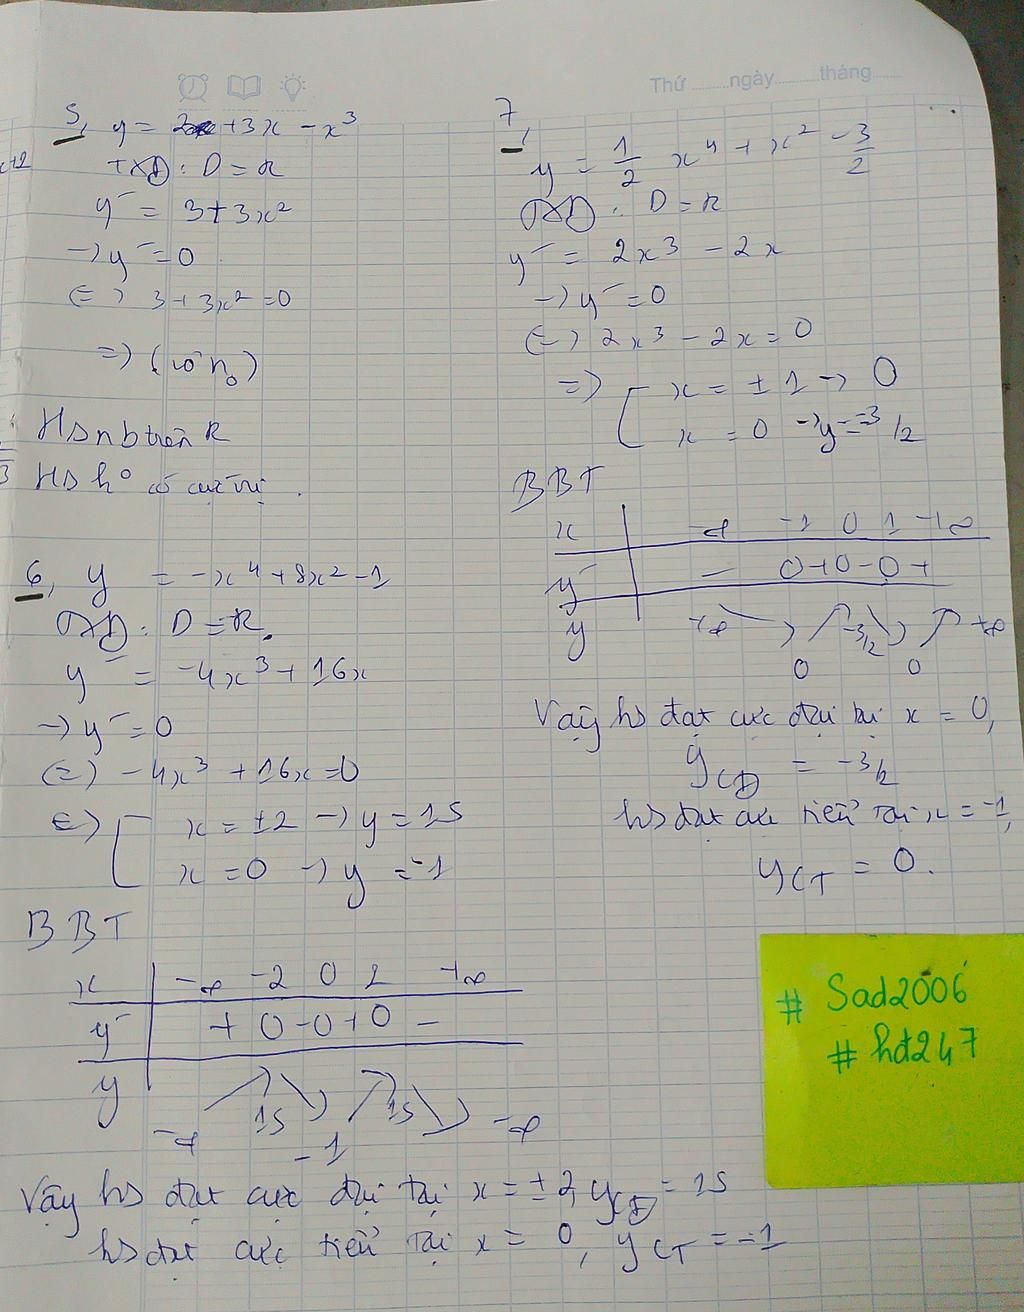 Thứ ......ngày.........tháng......
5, y = 2 + 3x - x³
TXĐ: D = R
y' = 3 + 3x²
→ y' = 0
⇔ 3 + 3x² = 0
⇒ (vô n₀)
HS nb trên R
HS k° có cực trị.
6, y = -x⁴ + 8x² - 1
TXĐ: D = R.
y' = -4x³ + 16x
→ y' = 0
⇔ -4x³ + 16x = 0
⇔ [ x = ±2 → y = 15
x = 0 → y = -1
BBT
x | -∞ -2 0 2 +∞
y' | + 0 - 0 + 0 -
y | -∞ ↗ 15 ↘ -1 ↗ 15 ↘ -∞
Vậy hs đạt cực đại tại x = ±2, yCĐ = 15
hs đạt cực tiểu tại x = 0, yCT = -1
7, y = 1/2 x⁴ + x² - 3/2
TXĐ: D = R
y' = 2x³ - 2x
→ y' = 0
⇔ 2x³ - 2x = 0
⇒ [ x = ±1 → 0
x = 0 → y = -3/2
BBT
x | -∞ -1 0 1 +∞
y' | - 0 + 0 - 0 +
y | +∞ ↘ 0 ↗ -3/2 ↘ 0 ↗ +∞
Vậy hs đạt cực đại tại x = 0,
yCĐ = -3/2
hs đạt cực tiểu tại x = -1,
yCT = 0.
# Sad2006
# hđ247